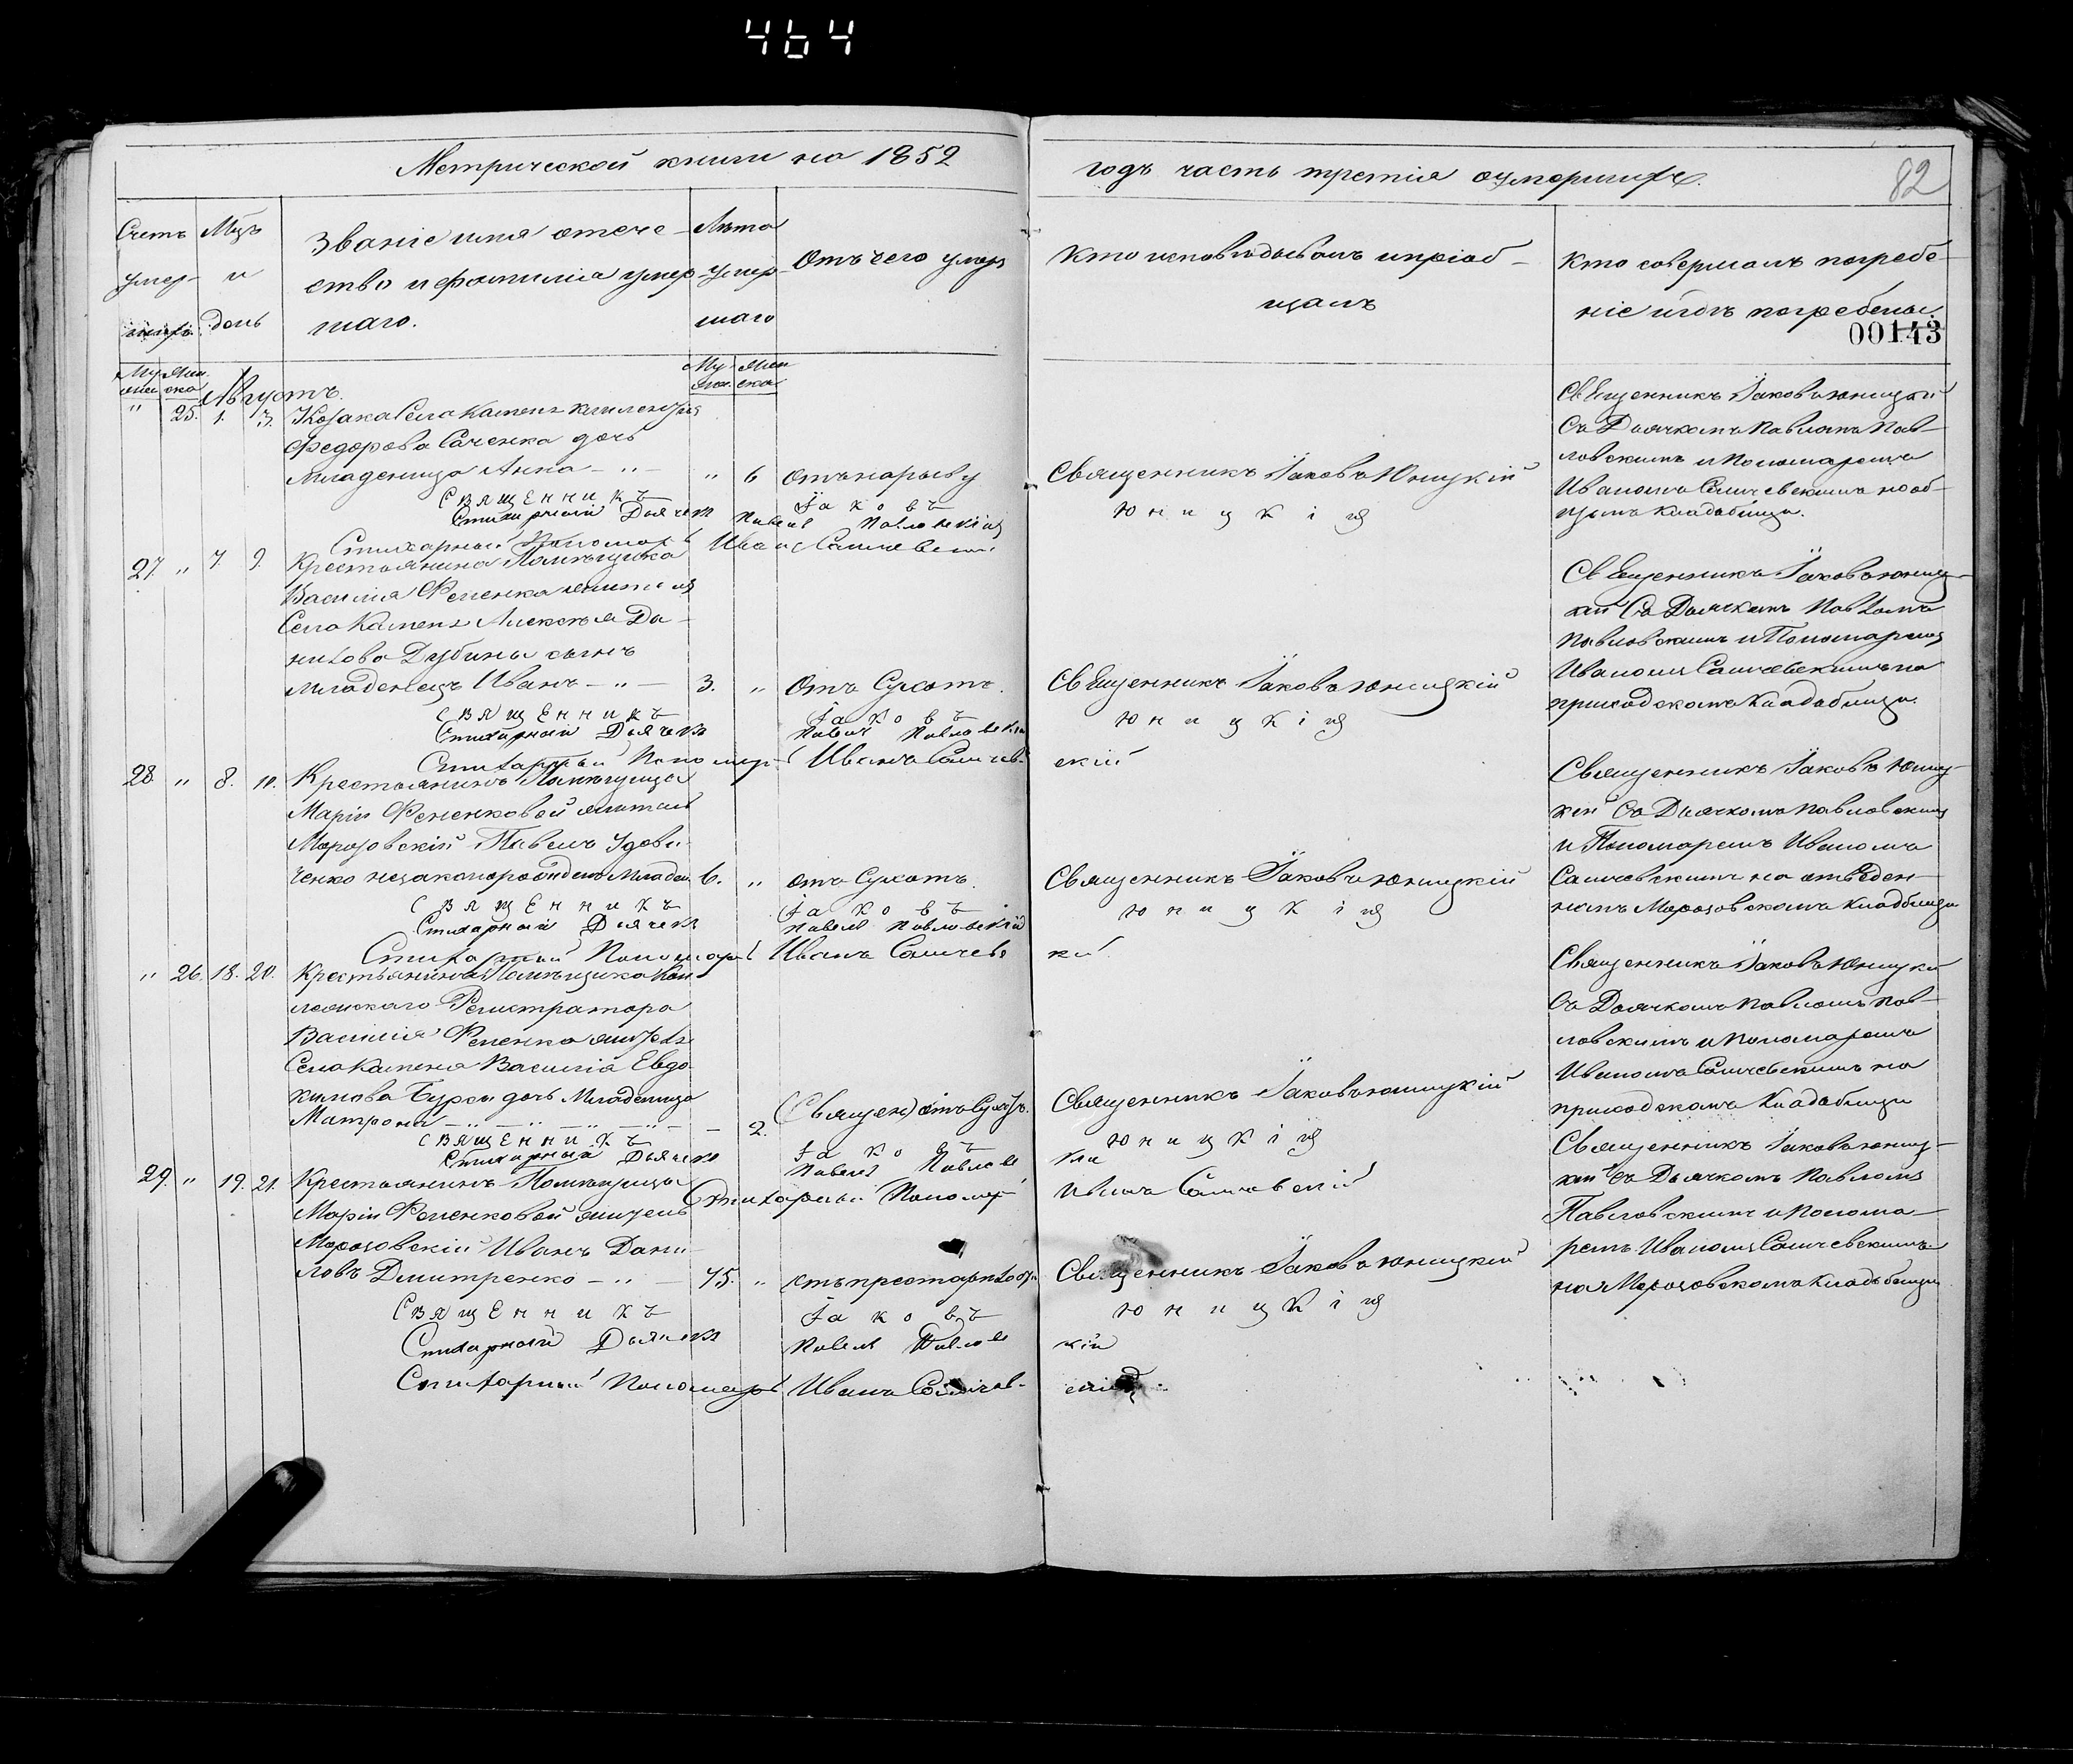 464
Метрической книги на 1852
годъ часть третія о умершихъ.
82
Счетъ умер-шихъ
Мцъ и день
Званіе имя отече-
ство и фамилія умер-
шаго.
Лѣта умер-шаго
Отъ чего умеръ
Кто исповѣдывалъ и пріоб-
щалъ
Кто совершалъ погребе-
ніе и гдѣ погребены.
00143
Муже Жен.ска
Му Жен ска
Августъ.
" 25. 1. 3. Козака Села Каменя
Федорова Саченка дочь
младеница Анна - " - " 6 отъ нарыву
Священникъ Іаковъ Юницкій
Священникъ Іаковъ Юницкій
Съ Дьячкомъ Павломъ Пав-
ловскимъ и Пономаремъ
Иваномъ Самчевскимъ на об-
щемъ кладбищѣ.
Священникъ Іаковъ Юницкій
Стихарный Дьячекъ Павелъ Павловскій
Стихарный Пономарь Иванъ Самчевскій
27. " 7. 9. Крестьянина Помѣщика
Василія Феленка жителя
Села Каменя Алексѣя Да-
нилова Дубины сынъ
младенецъ Иванъ - " - 3. " Отъ Сухотъ.
Священникъ Іаковъ Юницкій
Священникъ Іаковъ Юниц-
кій Съ Дьячкомъ Павломъ
Павловскимъ и Пономаремъ
Иваномъ Самчевскимъ на
приходскомъ Кладбищѣ.
Священникъ Іаковъ Юницкій
Стихарный Дьячекъ Павелъ Павловскій
Стихарный Пономарь Иванъ Самчев-скій
28 " 8. 10. Крестьянинъ Помѣщицы
Маріи Феленковой житель
Морозовскій Павелъ Удови-
ченко незаконорожденъ Младен. 6. " отъ Сухотъ.
Священникъ Іаковъ Юницкій
Священникъ Іаковъ Юниц-
кій Съ Дьячкомъ Павловскимъ
и Пономаремъ Иваномъ
Самчевскимъ на отведен-
номъ Морозовскомъ Кладбищѣ
Священникъ Іаковъ Юницкій
Стихарный Дьячекъ Павелъ Павловскій
Стихарный Пономарь Иванъ Самчевскій
" 26. 18. 20. Крестьянина Помѣщика Кол
лежскаго Регистратора
Василія Феленка
Села Каменя Василія Евдо-
кимова Бурсы дочь Младеница
Матрона - " - " - " - 2. (Священ) отъ Сухотъ.
Священникъ Іаковъ Юницкій
Священникъ Іаковъ Юницкій
Съ Дьячкомъ Павломъ Пав-
ловскимъ и Пономаремъ
Иваномъ Самчевскимъ на
приходскомъ Кладбищѣ
Священникъ Іаковъ Юницкій
Стихарный Дьячекъ Павелъ Павловскій
Стихарный Пономарь Иванъ Самчевскій
29. " 19. 21. Крестьянинъ Помѣщицы
Маріи Феленковой житель
Морозовскій Иванъ Дани-
ловъ Дмитренко - " - 75. " отъ престарѣлости
Священникъ Іаковъ Юницкій
Священникъ Іаковъ Юниц-
кій Съ Дьячкомъ Павломъ
Павловскимъ и Понома-
ремъ Иваномъ Самчевскимъ
на Морозовскомъ Кладбищѣ
Священникъ Іаковъ Юницкій
Стихарный Дьячекъ Павелъ Павловскій
Стихарный Пономарь Иванъ Самчев-скій